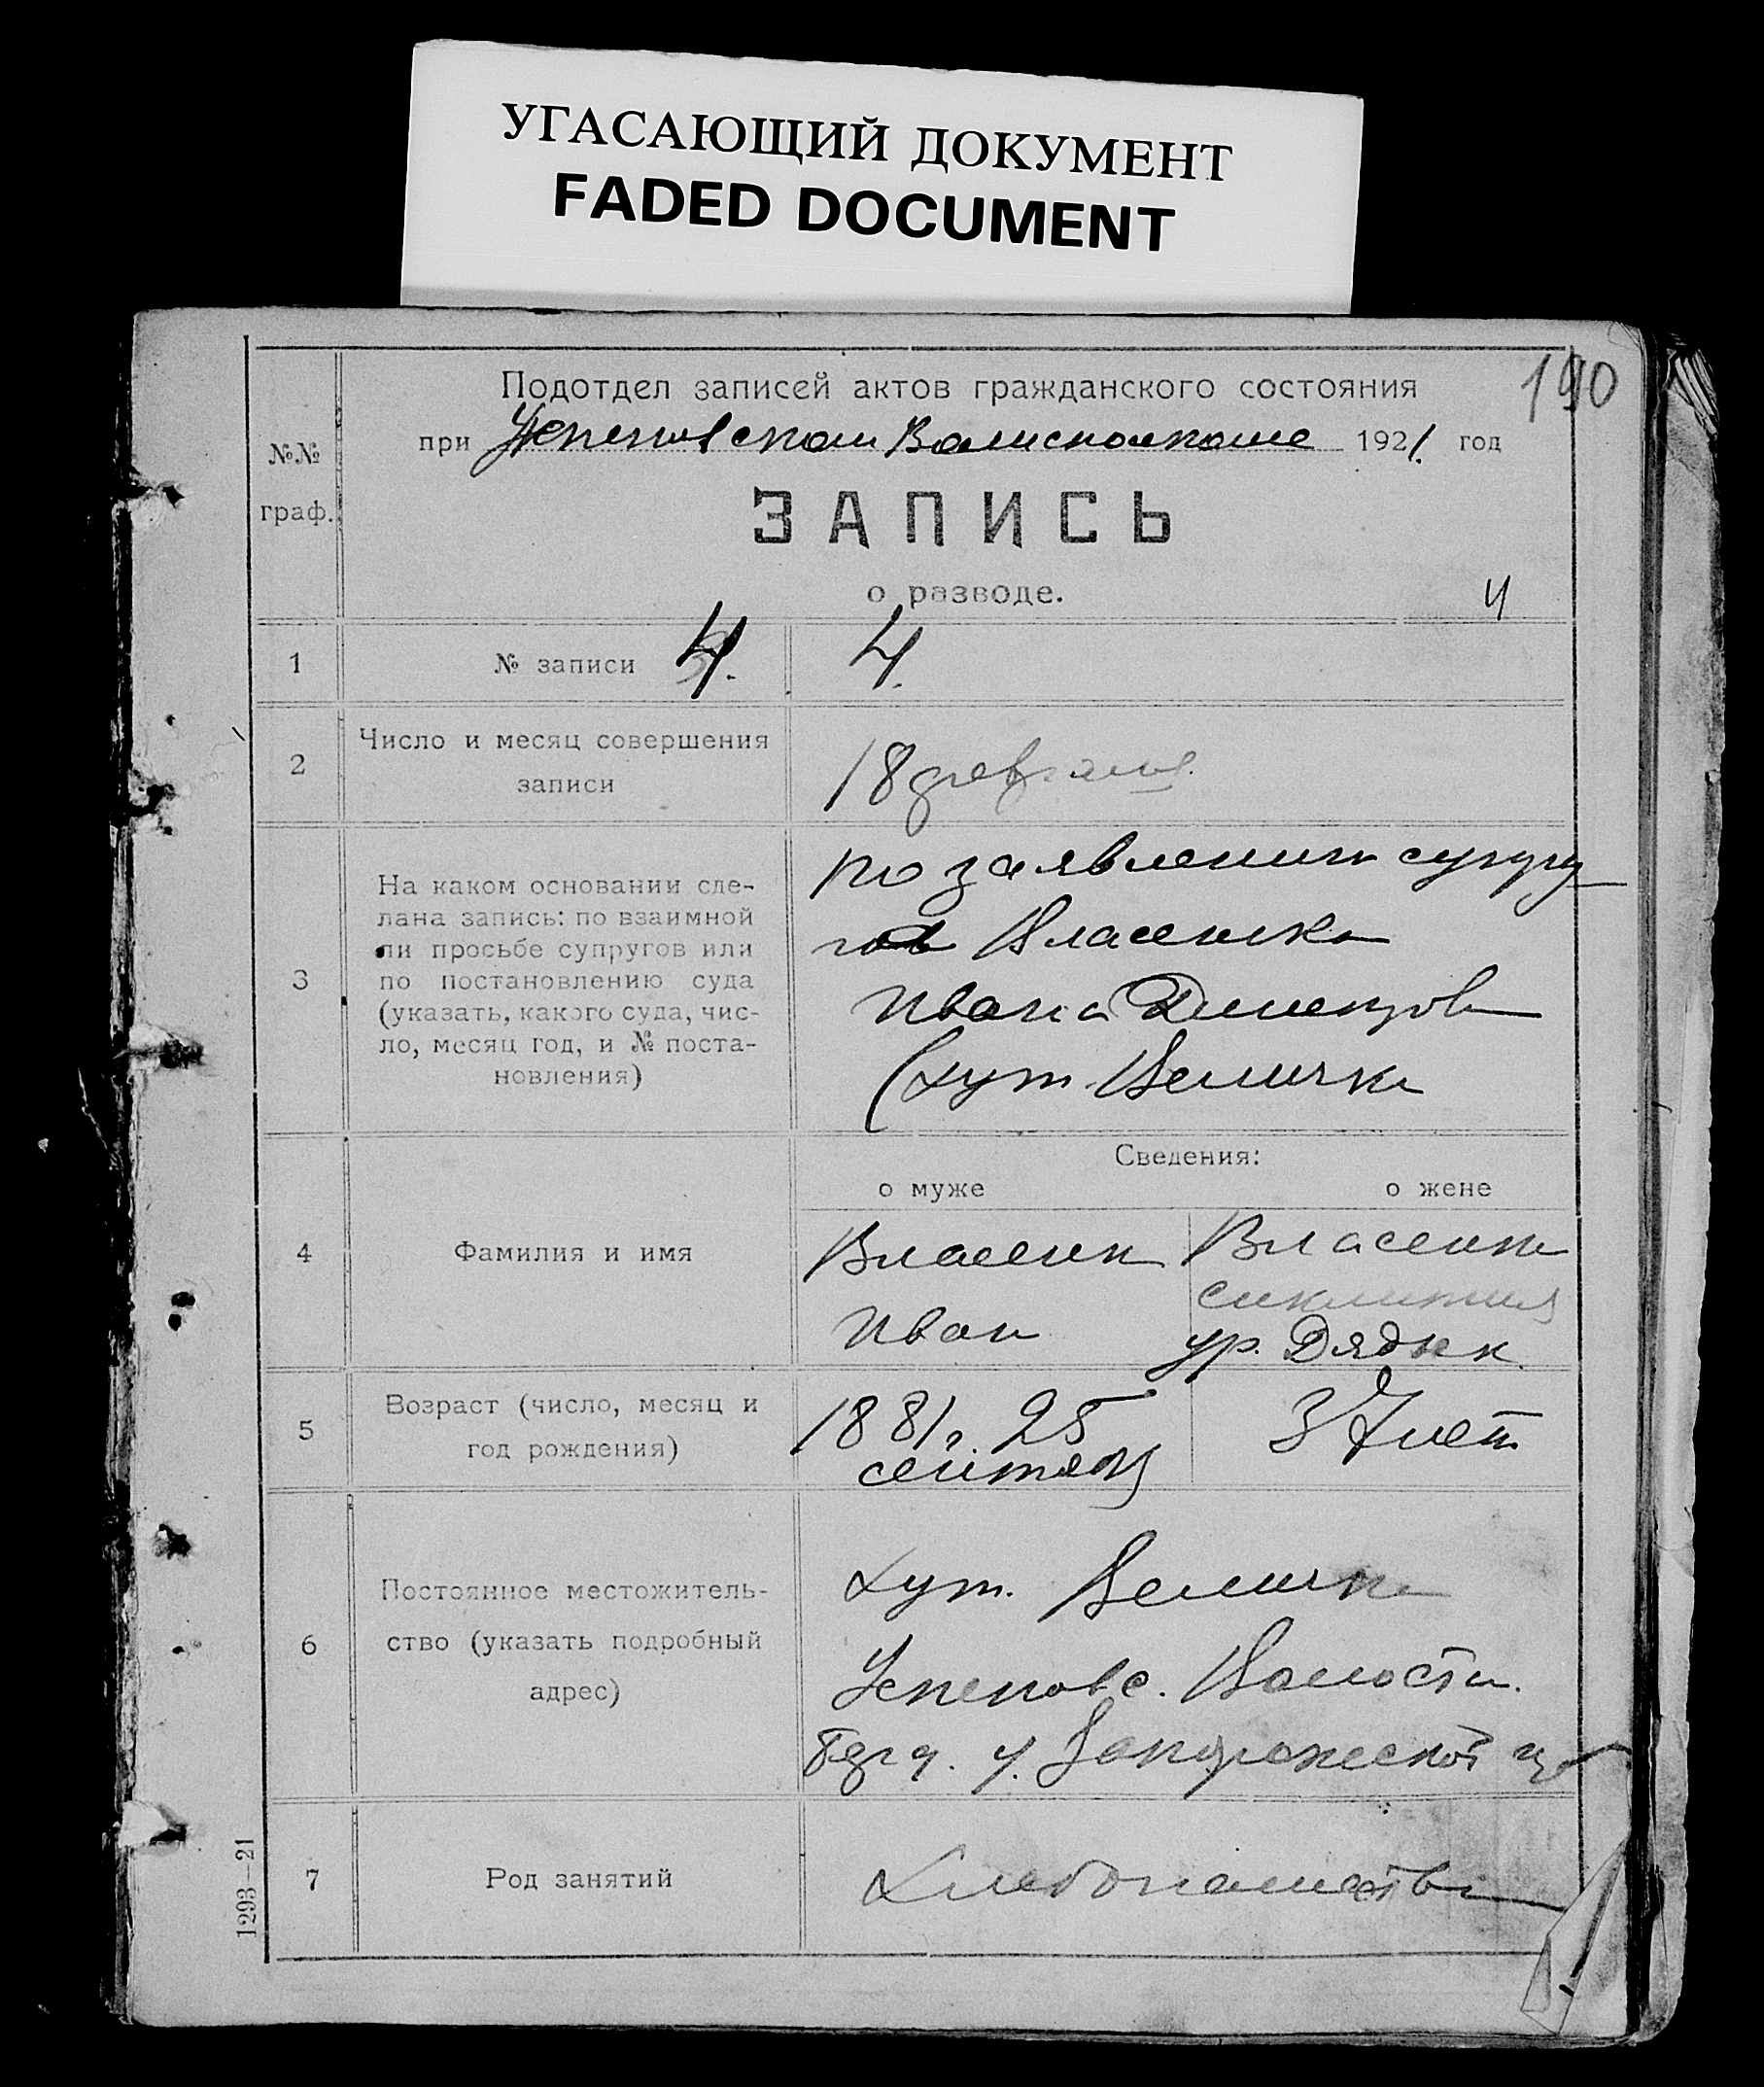 УГАСАЮЩИЙ ДОКУМЕНТ
FADED DOCUMENT
190
Подотдел записей актов гражданского состояния
при Успеновском Волисполкоме 1921. год
№№
граф.
ЗАПИСЬ
о разводе.
4
1 № записи 4. 4.
2 Число и месяц совершения
записи
18 февраля.
3 На каком основании сде-
лана запись: по взаимной
ли просьбе супругов или
по постановлению суда
(указать, какого суда, чис-
ло, месяц год, и № поста-
новления)
по заявлению супру
гов Власенко
Ивана
(хут Величко
Сведения:
о муже о жене
4 Фамилия и имя
Власенко Власенко
Иван
ур. Дядюк
5 Возраст (число, месяц и
год рождения)
1881 г. 25 37 лет
сентября
6 Постоянное местожитель-
ство (указать подробный
адрес)
хут. Величко
Успеновс. Волости.
у. Запорожской гу
7 Род занятий
Хлебопашество
1293—21